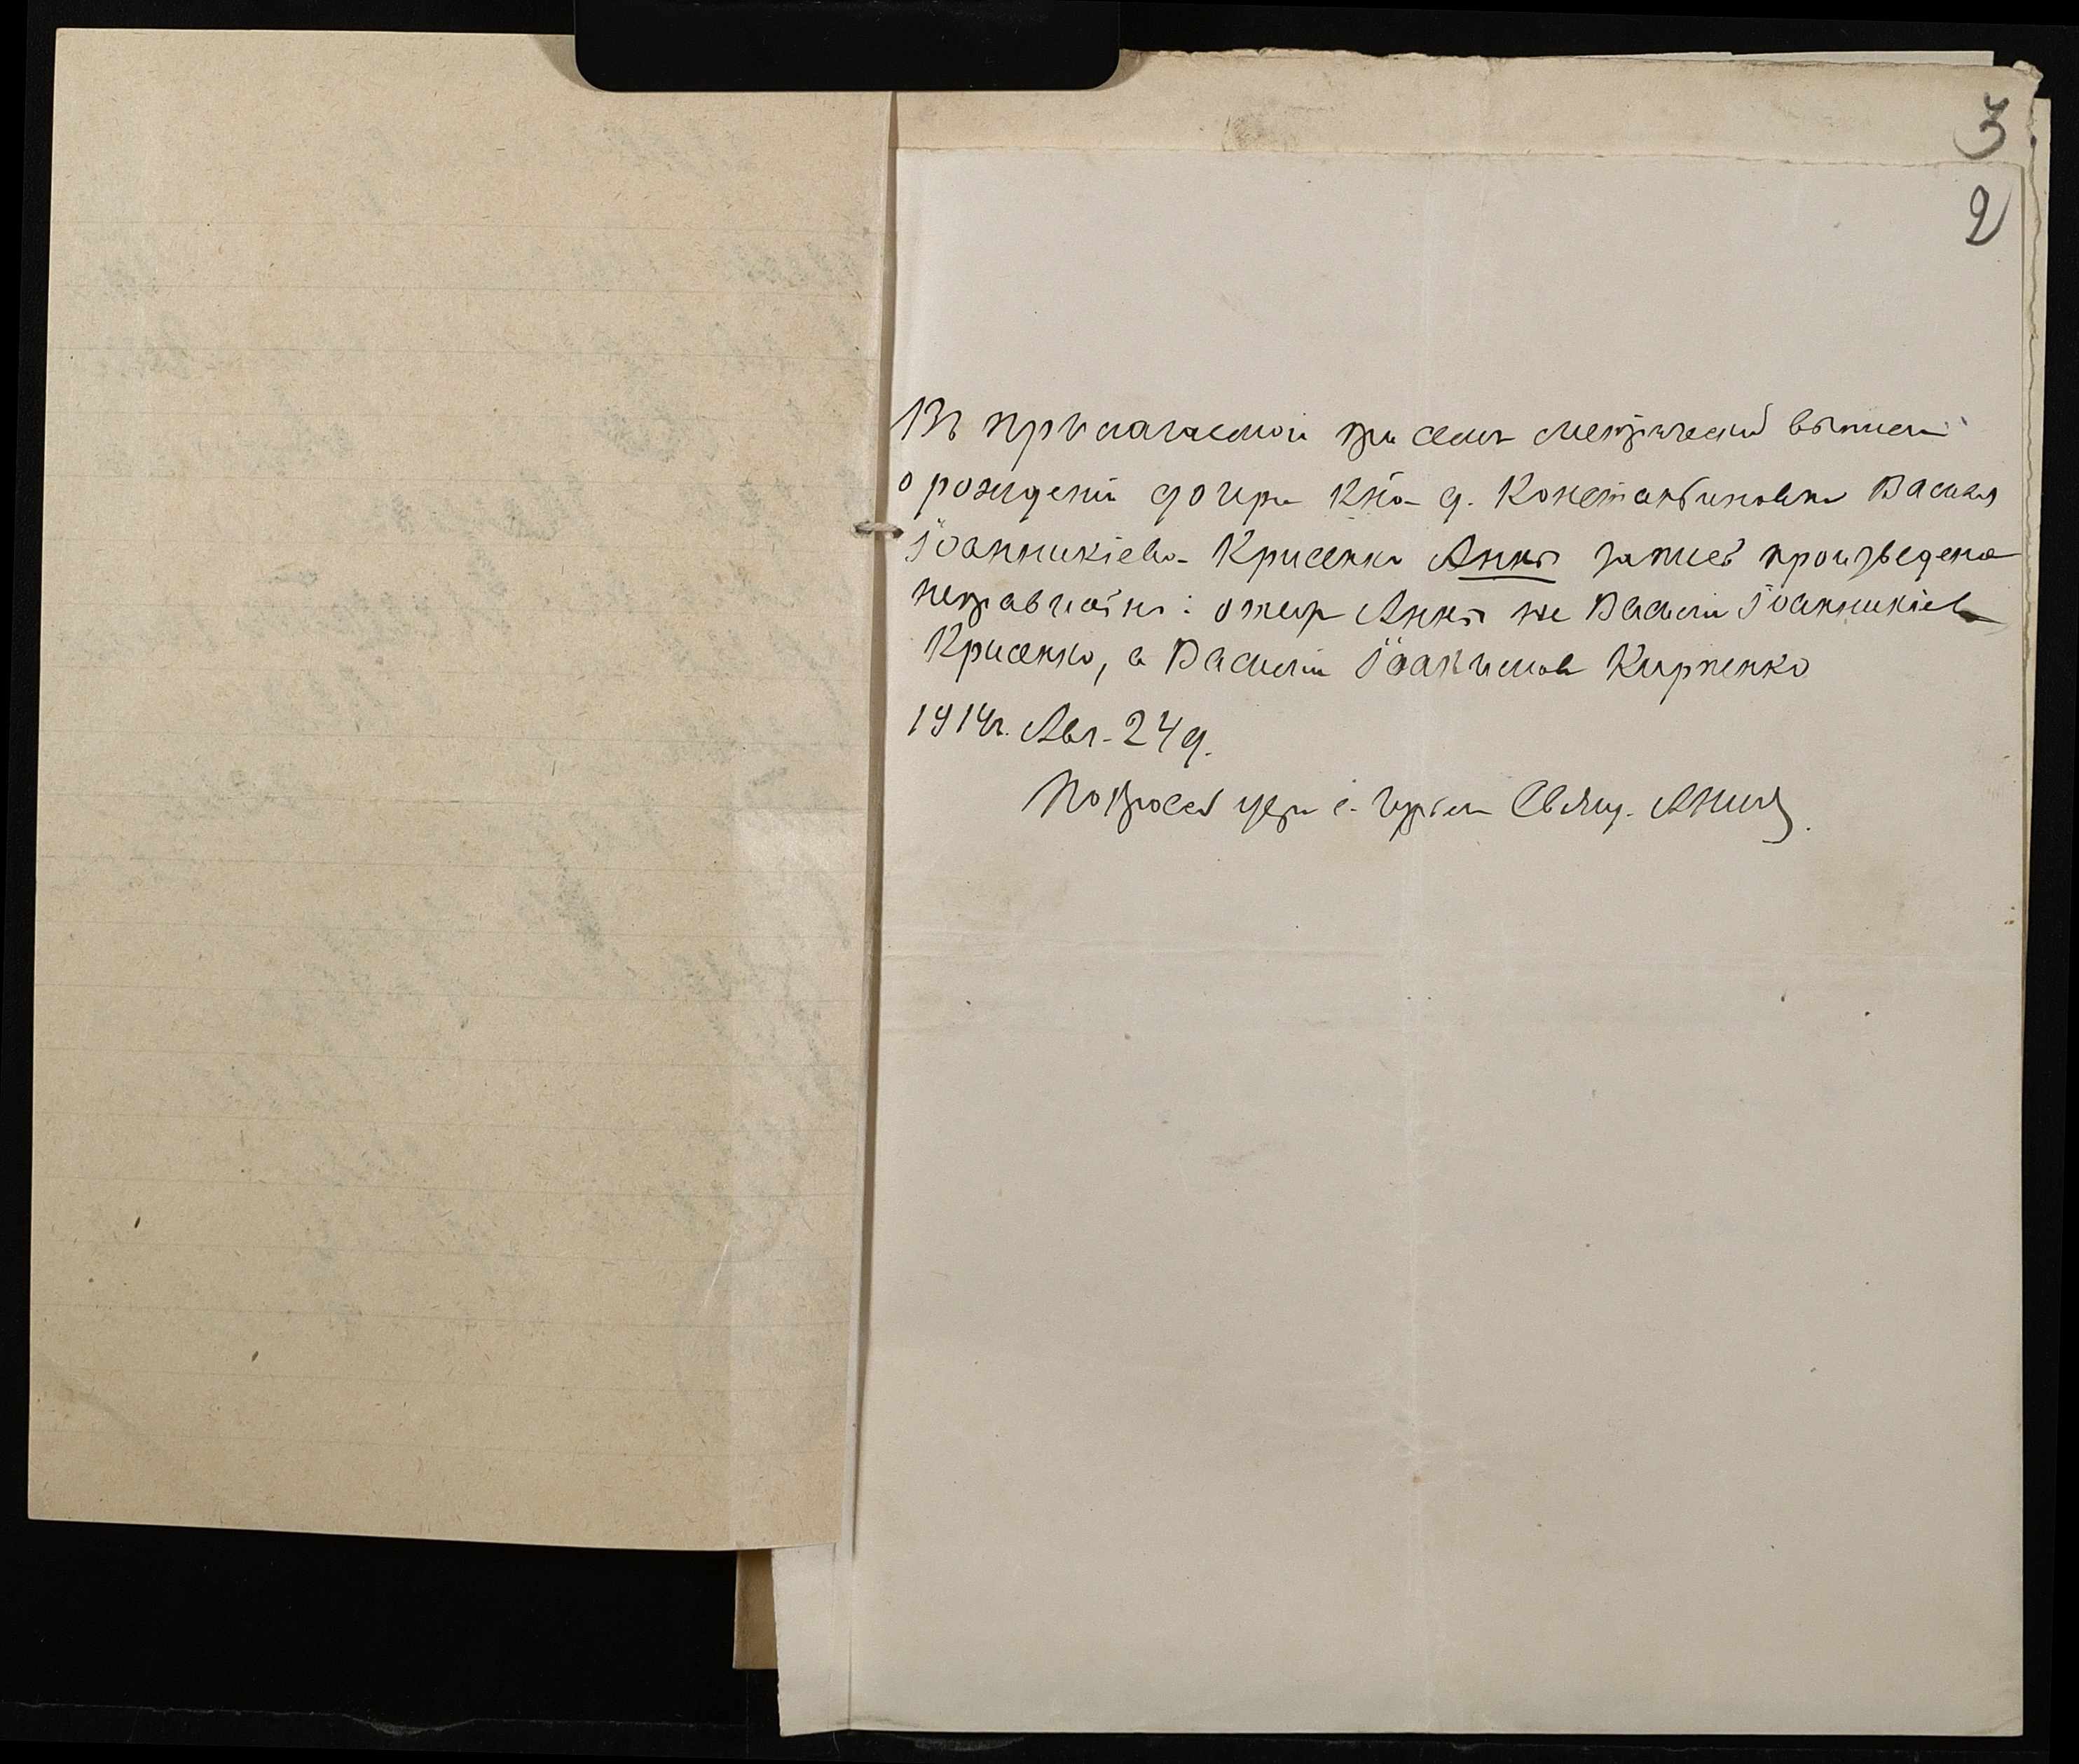 3
2
Въ прилагаемой при семъ метрической выписи
о рожденіи дочери кр-на д. Константиновки Василія
Іоанникіева Крисенко Анны запись произведена
неправильно: отецъ Анны не Василій Іоанникіев
Крисенко, а Василій Іоакимов Кирпенко
1914 г. Авг. 24 д.
Покровск церкви с. Свящ.